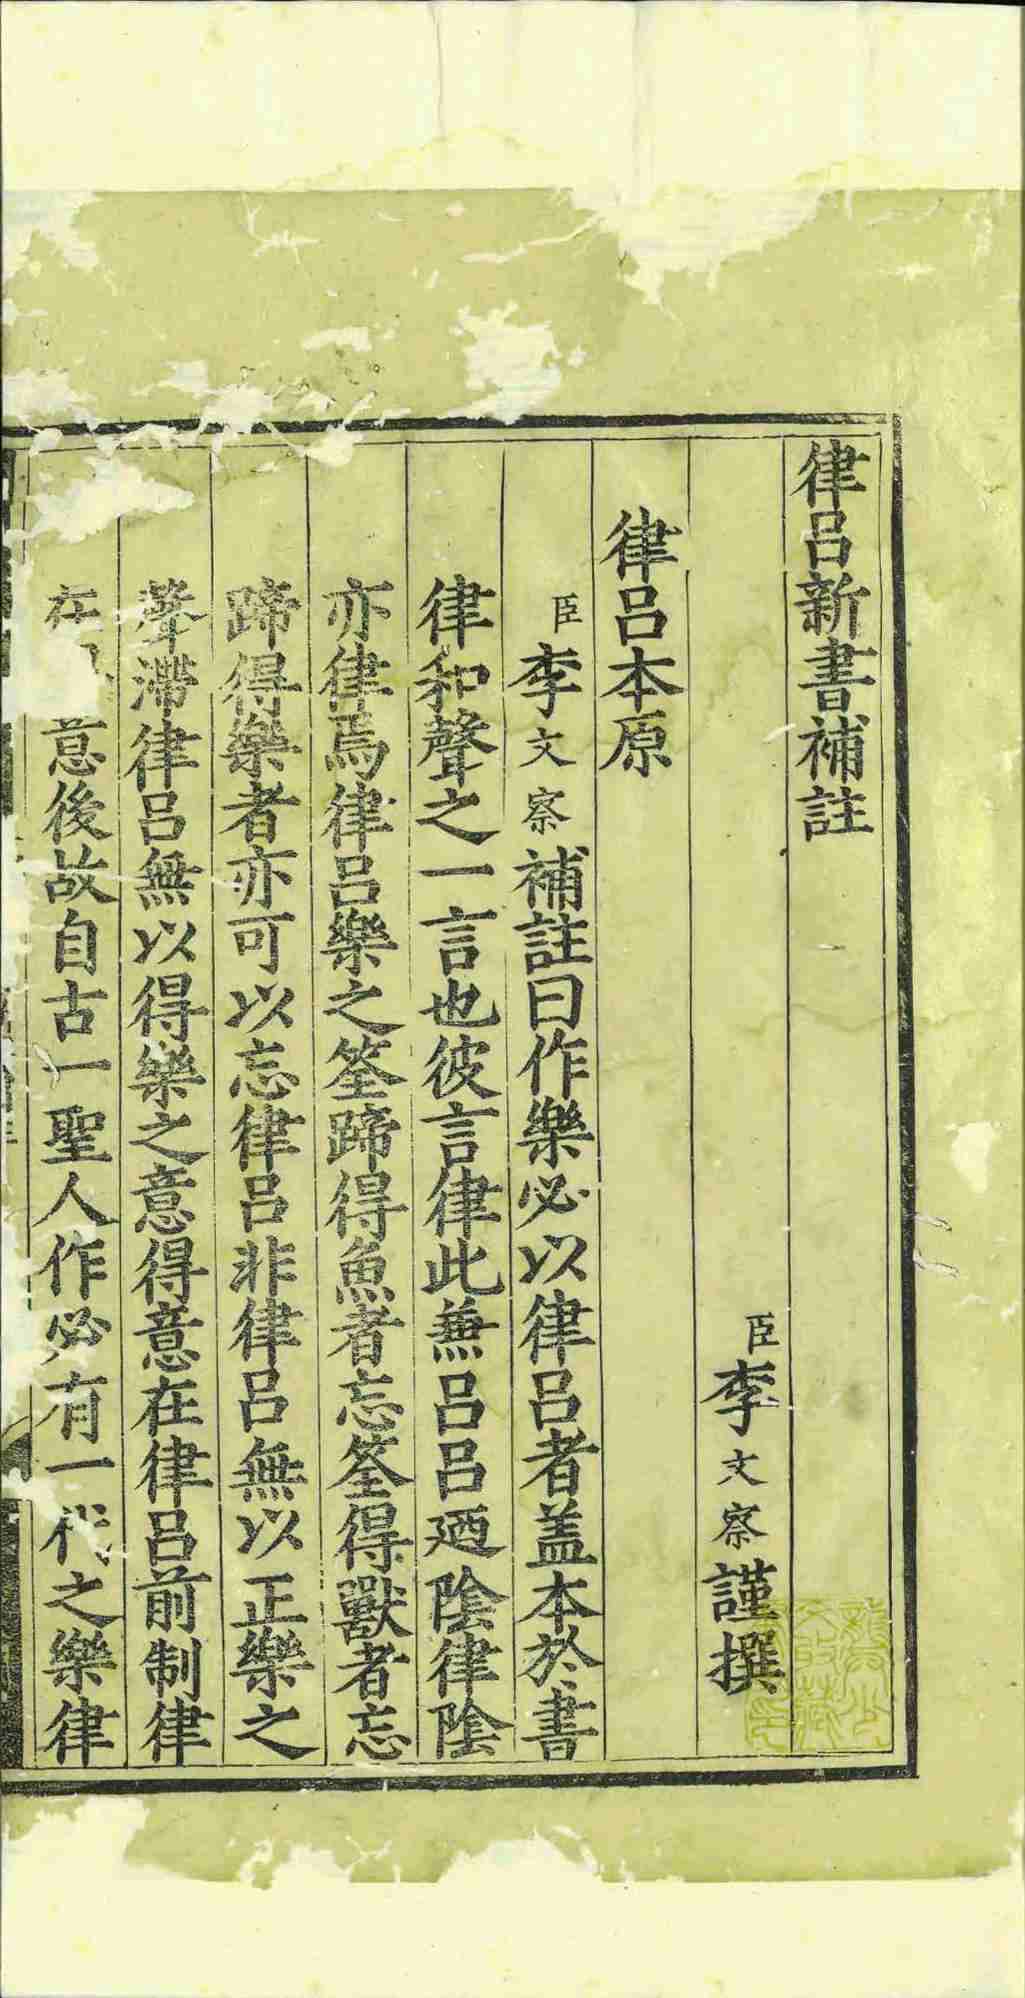 律呂新書補註
臣李文察謹撰
律呂本原
臣李文察補註曰作樂必以律呂者盖本於書
律和聲之一言也彼言律此蕪呂呂廼陰律陰
亦律焉律呂樂之筌蹄得魚者忘筌得獸者忘
蹄得樂者亦可以忘律呂非律呂無以正樂之
聲滯律呂無以得樂之意得意在律呂前制律
在意後故自古一聖人作必有一代之樂律